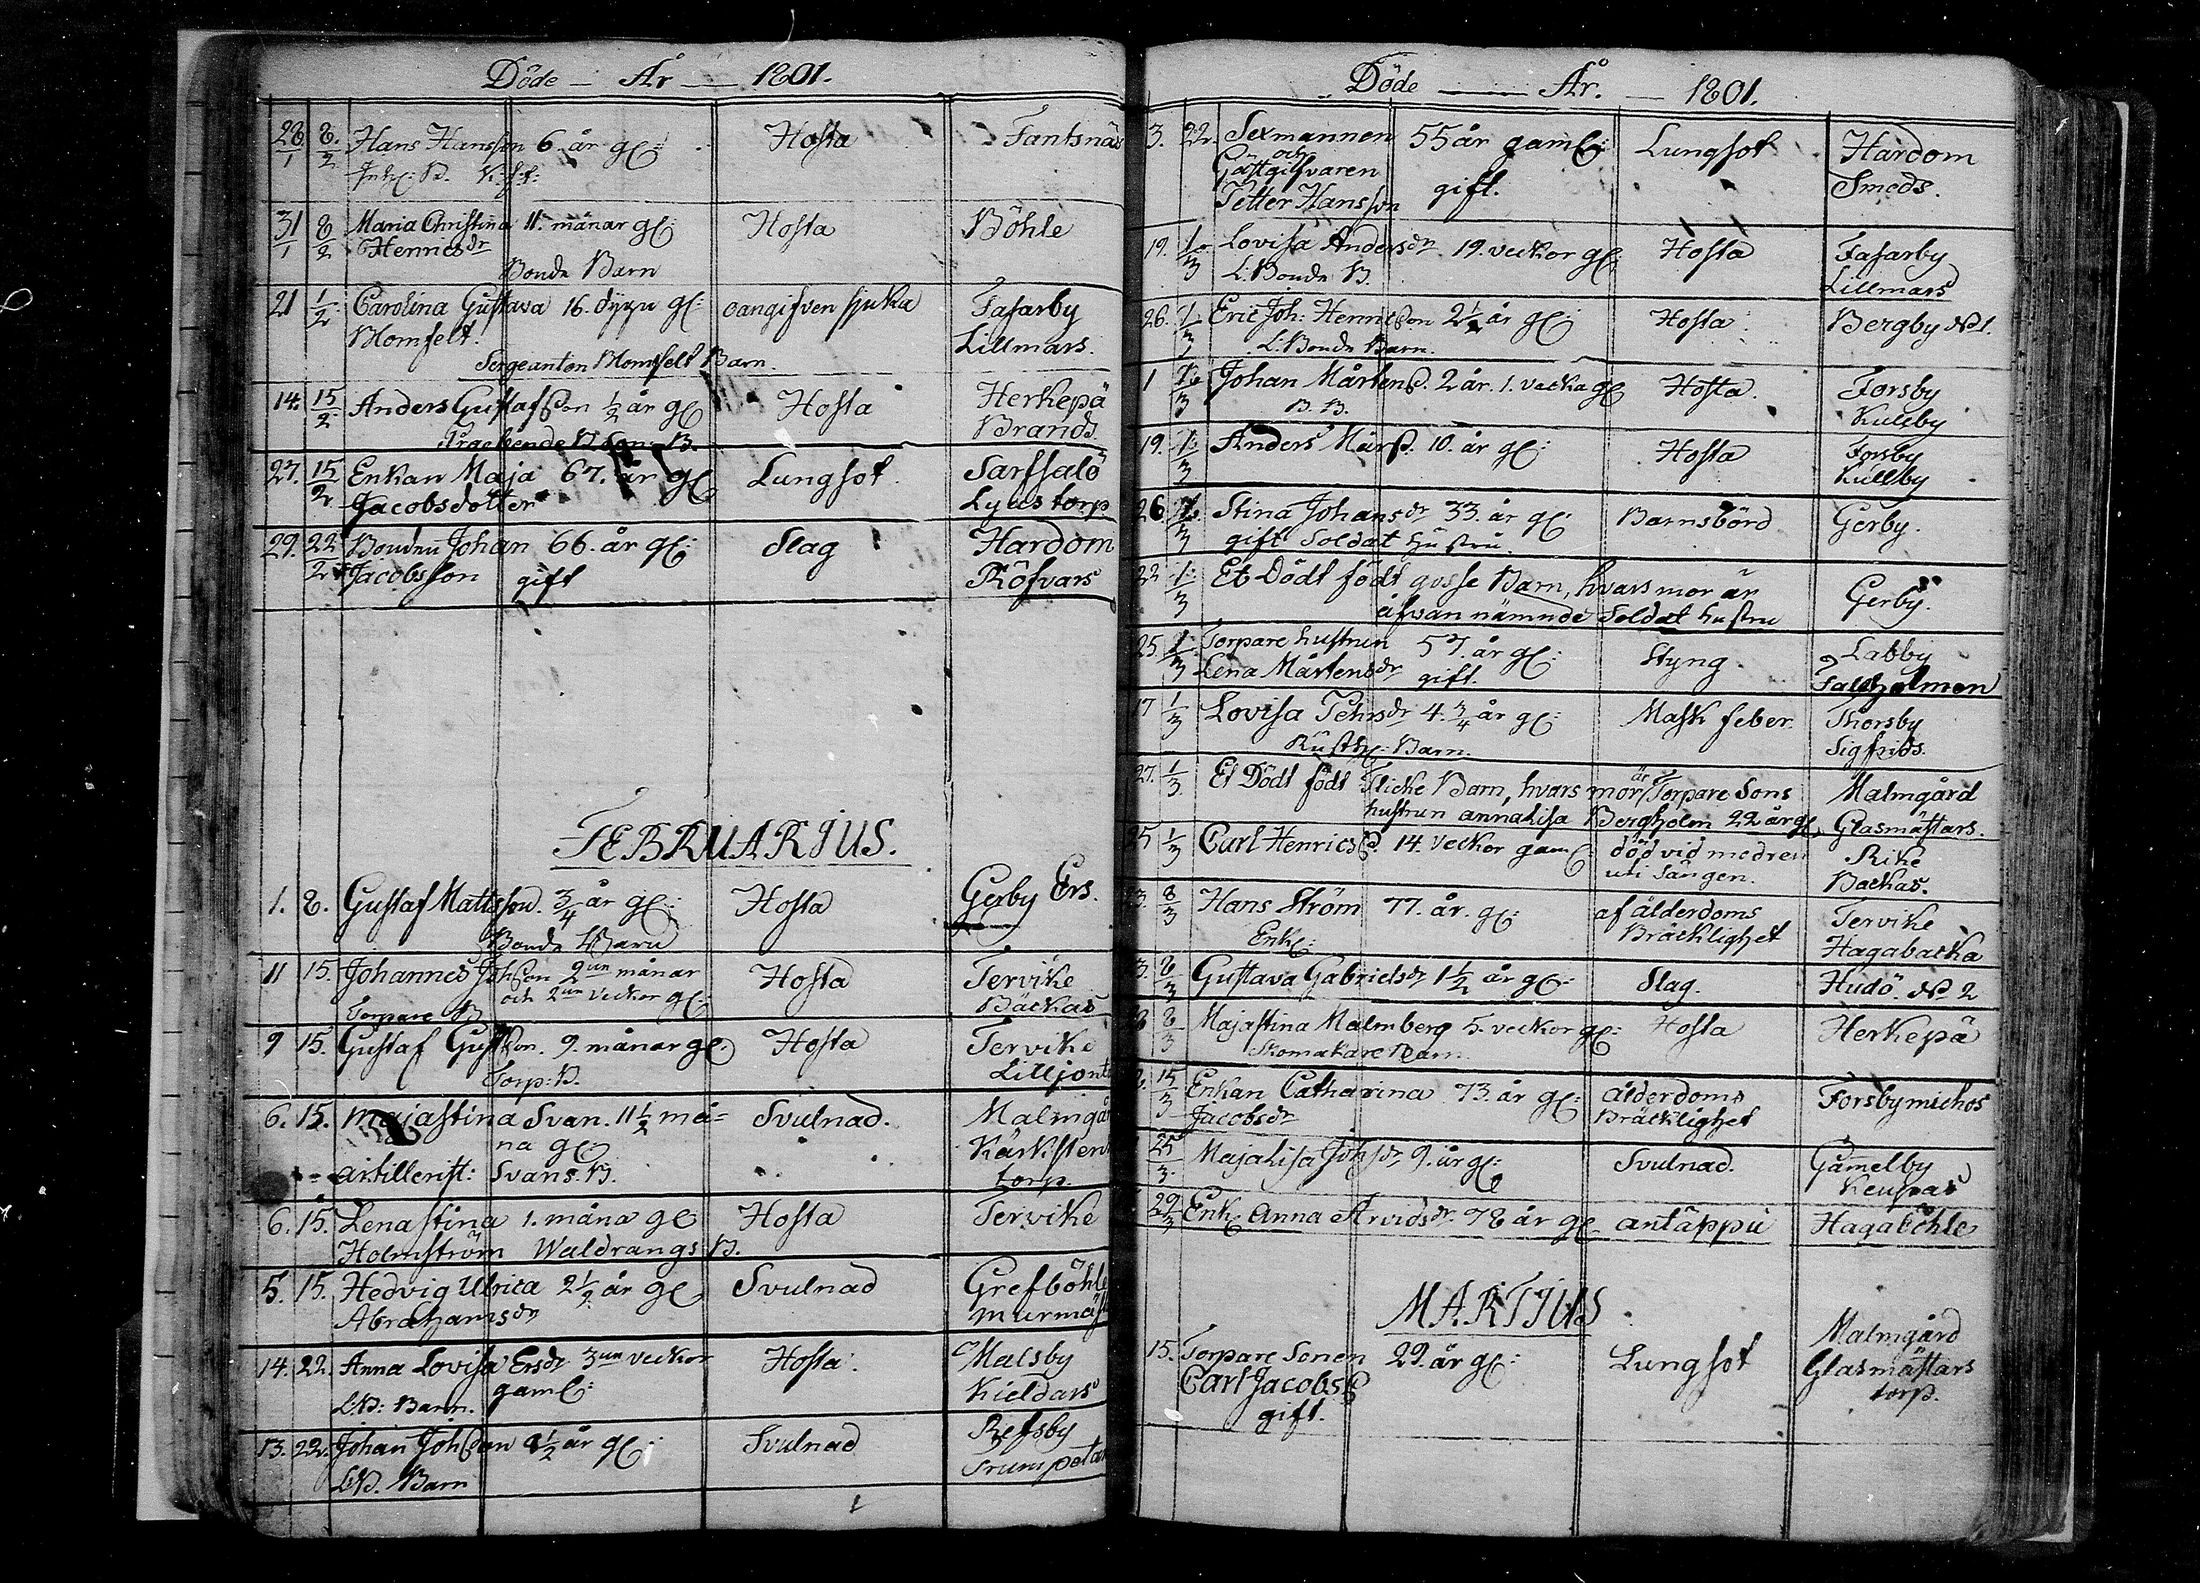 Döde — År — 1801.
28/1 8/2 Hans Hansson 6. år gl: Hosta Fantsnäs
31/1 8/2 Maria Christina 11. månar gl: Hosta Böhle
Henricsdr
Bonde Barn
21 1/2 Carolina Gustava 16. dygn gl: oangifven sjuka Fasarby
Blomfelt. Lillmars.
Sergeanten Blomfelt Barn.
14. 15/2 Anders Gustafsson 1/2 år gl Hosta Herkepä
Brands
27. 15/2 Enkan Maja 67. år gl Lungsot. Sarfsalö
Jacobsdotter torp
29. 22/2 Bonden Johan 66. år gl: Slag Hardom
Jacobsson gift Röfvars
FEBRUARIUS.
1. 8. Gustaf Mattsson. 3/4 år gl: Hosta Gerby Ers.
Bonde Barn
11 15. Johannes Johsson 9un månar Hosta Tervike
och 2un veckor gl: Bäckas
Torpare B
9 15. Gustaf Gustsson. 9. månar gl: Hosta Tervike
Torp: B. Lilljonts
6. 15. Majastina Svan. 11 1/2 må= Svulnad. Malmgår
na gl
artillerist: Svans. B. torp.
6. 15. Lenastina 1. måna gl Hosta Tervike
Holmström Waldrangs B.
5. 15. Hedvig Ulrica 2 1/2 år gl Svulnad Grefböhle
Abrahamsdr
14. 22. Anna Lovisa Ersdr 3un veckor Hosta. Malsby
gaml: Kieldars
LB: Barn.
13. 22. Johan Johsson 1/2 år gl: Svulnad Refsby
LB. Barn Trumpetar
Döde — År. — 1801.
3. 22. Sexmannen 55 år gaml: Lungsot Hardom
och
Gästgifvaren Smeds.
Petter Hansson gift.
19. 1/3 Lovisa Andersdr 19. veckor gl: Hosta Fasarby
L: Bonde B. Lillmars
26. 1/3 Eric Joh: Henricsson 2 1/2 år gl: Hosta. Bergby No 1.
L: Bonde Barn.
1 1/3 Johan Mårtenss. 2 år. 1. vecka gl Hosta. Forsby
B. B. Kullby
19. 1/3 Anders Mårss. 10. år gl: Hosta Forsby
Kullby
26 1/3 Stina Johansdr 33. år gl: Barnsbörd Gerby.
gift Soldat hustru.
22 1/3 Et Dödt födt gosse Barn, hvars mor är Gerby.
åfvan nämnde Soldat hustru
25. 1/3 Torpare hustrun 57. år gl: Styng. Labby
Lena Mårtensdr gift. Fallholmen
17 1/3 Lovisa Pehrsdr 4. 3/4 år gl: Mask feber Thorsby
Rusth: Barn. Sigfrids.
27. 1/3 Et Dödt födt Flicke Barn, hvars mor är Torpare Sons Malmgård
hustrun annaLisa Bergholm 22 år gl, Glasmästars.
25 1/3 Carl Henricss. 14. veckor gaml: död vid modren Rike
uti Sängen. Backas.
23. 8/3 Hans Ström 77. år. gl: af ålderdoms Tervike
Enkl: Bräcklighet Hagabacka
3. 8/3 Gustava Gabrielsdr 1 1/2 år gl: Slag. Hudö. No 2
8/3 Majastina Malmberg 5. veckor gl: Hosta Herkepä
Skomakare Barn.
15/3 Enkan Catharina 73. år gl: ålderdoms Forsby michos
Jacobsdr Bräcklighet
25/3. MajaLisa Johsdr 9. år gl: Svulnad. Gamelby
29/3 Enk Anna Arvidsdr. 78 år gl Hagaböhle
MARTIUS
15. Torpare Sonen 29. år gl: Lungsot Malmgård
Carl Jacobss Glasmästars
gift. torp.